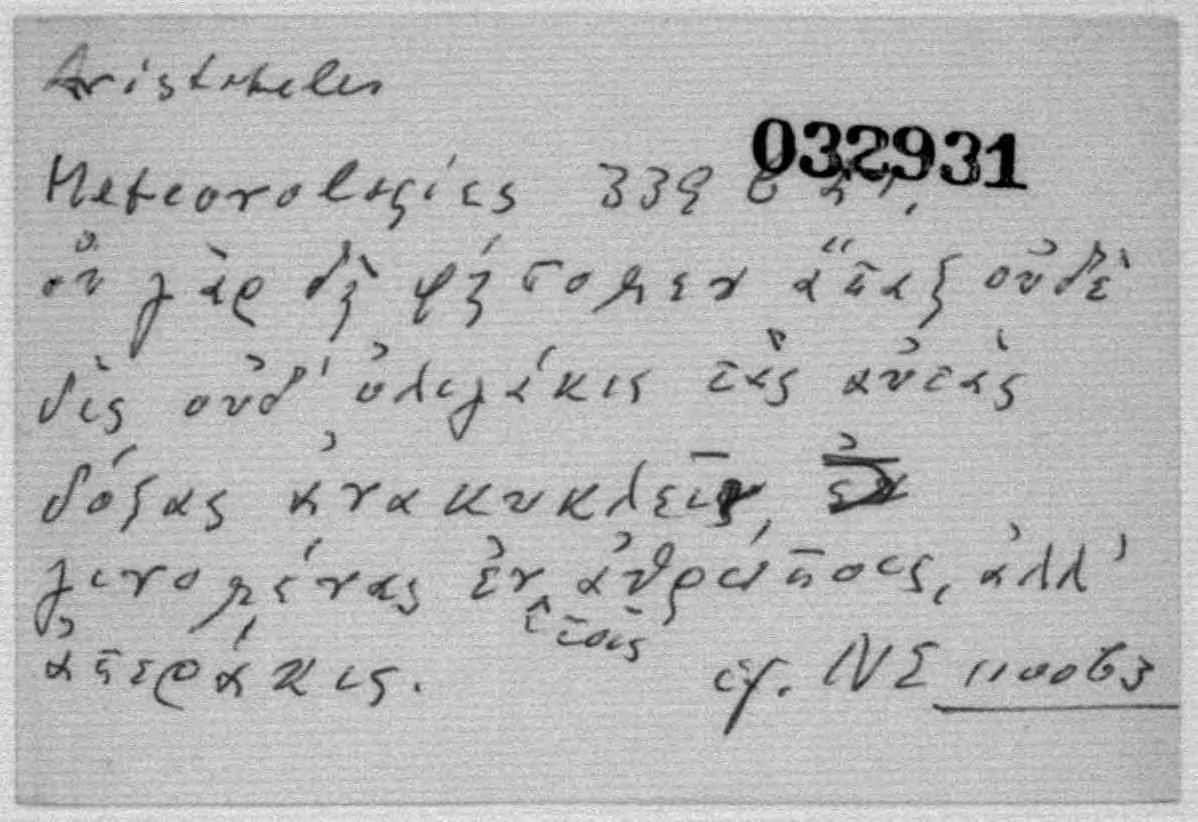 Aristoteles
032931
Meteorologics 339 b 27,
οὐ γὰρ δὴ φήσομεν ἅπαξ οὐδὲ
δὶς οὐδ' ὀλιγάκις τὰς αὐτὰς
δόξας ἀνακυκλεῖν,
γινομένας ἐν τοῖς ἀνθρώποις, ἀλλ'
ἀπειράκις. cf. ΝΕ 1100b3